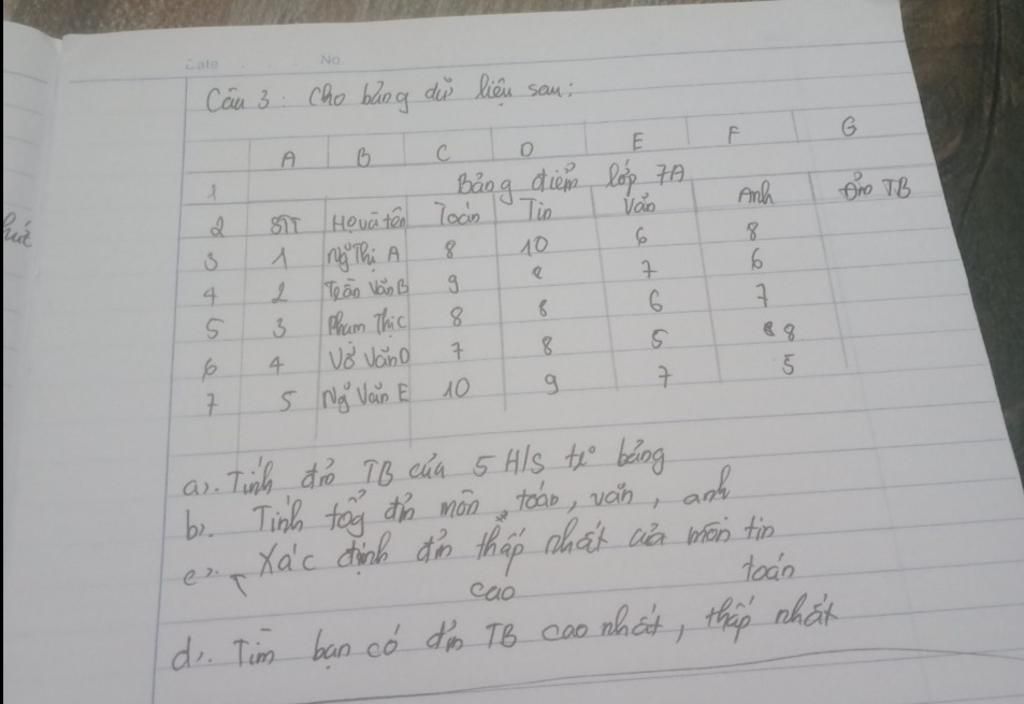 Date No.
Câu 3: Cho bảng dữ liệu sau:
A B C D E F G
1 Bảng điểm lớp 7A
2 STT Họ và tên Toán Tin Văn Anh Đ̉m TB
3 1 Ng̃ Thị A 8 10 6 8
4 2 Trần Văn B 9 7 6
5 3 Phạm Thị C 8 8 6 7
6 4 Võ Văn D 7 8 5 8
7 5 Ng̃ Văn E 10 9 7 5
a). Tính đ̉m TB của 5 H/S tr° bảng
b). Tính tổg đ̉m môn toán, văn, anh
c). Xác định đ̉m thấp nhất của môn tin
cao toán
d). Tìm bạn có đ̉m TB cao nhất, thấp nhất